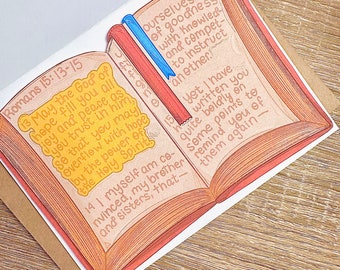 Romans 15:13-15
13 May the God of
hope fill you all
joy and peace as
you trust in him,
so that you may
overflow with hope
by the power of
the Holy Spirit.
14 I myself am co-
nvinced, my brothers
and sisters, that—
yourselves
of goodness
with knowled
and compet-
to instruct
another.
15 yet I have
written you
some points to
remind you of
them again—